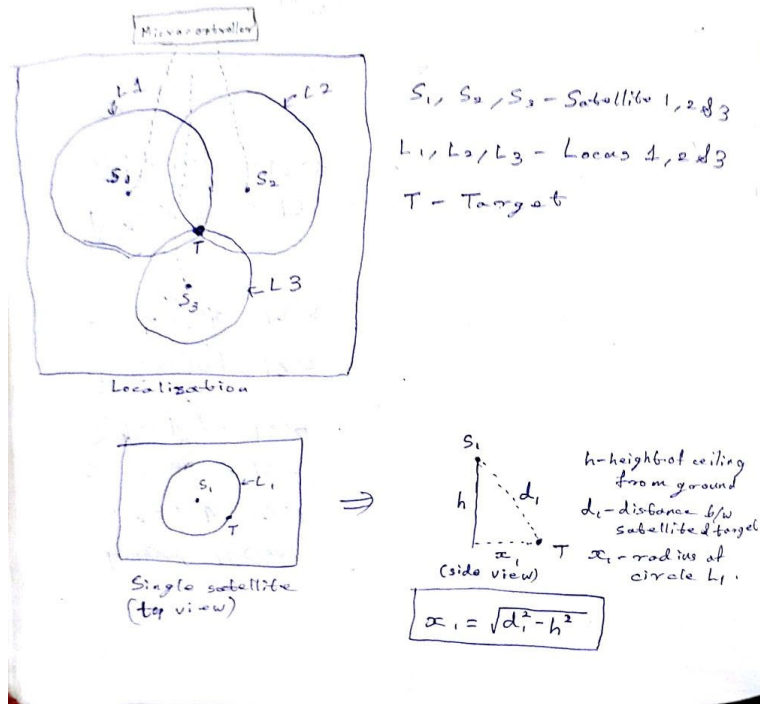 Microcontroller
L1
L2
S1
S2
T
S3
L3
Localization
S1, S2, S3 - Satellite 1, 2 & 3
L1, L2, L3 - Locus 1, 2 & 3
T - Target
S1
L1
T
Single satellite
(top view)
⇒
S1
h
d1
x1
T
(side view)
h-height of ceiling
from ground
d1-distance b/w
satellite & target
x1-radius of
circle L1.
x1 = √d1² - h²